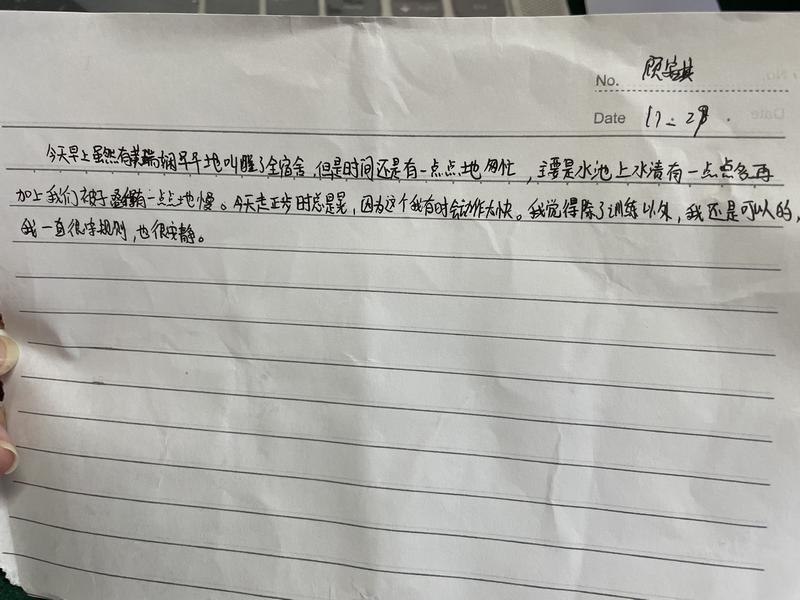 No. 顾安琪
Date 11.29.
今天早上虽然有瑞娴早早地叫醒了全宿舍,但是时间还是有一点点地匆忙,主要是水池上水渍有一点点多再
加上我们被子叠得有一点点地慢。今天走正步时总是晃,因为这个我有时会动作太快。我觉得除了训练以外,我还是可以的,
我一直很守规则,也很安静。